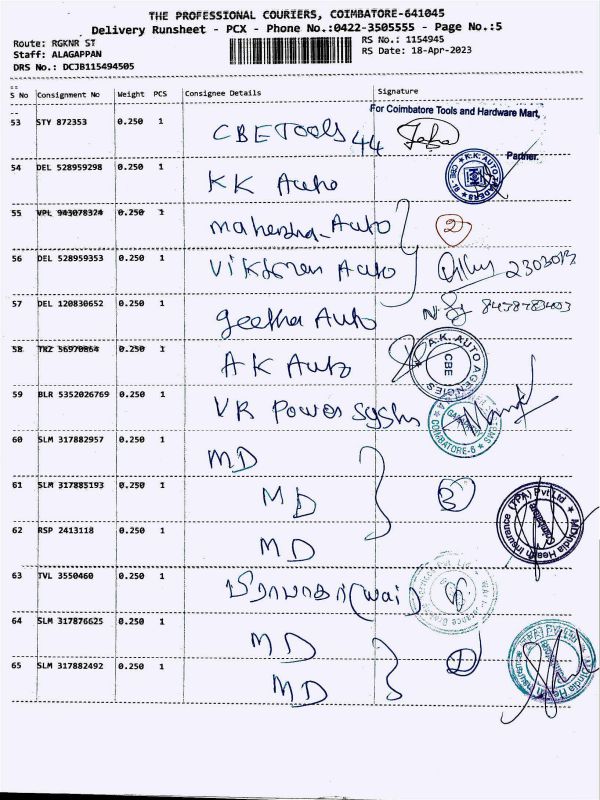 THE PROFESSIONAL COURIERS, COIMBATORE-641045
Delivery Runsheet - PCX - Phone No.:0422-3505555 - Page No.:5
Route: RGKNR ST
RS No.: 1154945
Staff: ALAGAPPAN
RS Date: 18-Apr-2023
DRS No.: DCJB115494505
S No Consignment No Weight PCS Consignee Details Signature
For Coimbatore Tools and Hardware Mart,
53 STY 872353 0.250 1 CBE Tools 44
Partner.
54 DEL 528959298 0.250 1 KK Auto
K.K. AUTO
55 VPL 943078324 0.250 1 mahendra Auto 2
56 DEL 528959353 0.250 1 Auto
57 DEL 120830652 0.250 1 geetha Auto
58 TRZ 56970864 0.250 1 AK Auto
A.K. AUTO AGENCIES
CBE
59 BLR 5352026769 0.250 1 VR Power
COIMBATORE-6
60 SLM 317882957 0.250 1 MD
61 SLM 317885193 0.250 1 MD 3
MDIndia Health Insurance (TPA) Pvt Ltd
Coimbatore
62 RSP 2413118 0.250 1 MD
63 TVL 3550460 0.250 1 (wai)
64 SLM 317876625 0.250 1 MD
65 SLM 317882492 0.250 1 MD
MDIndia Health Insurance (TPA) Pvt Ltd